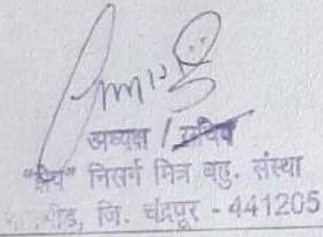 अध्यक्ष / सचिव
निसर्ग मित्र बहु. संस्था
जि. चंद्रपूर - 441205